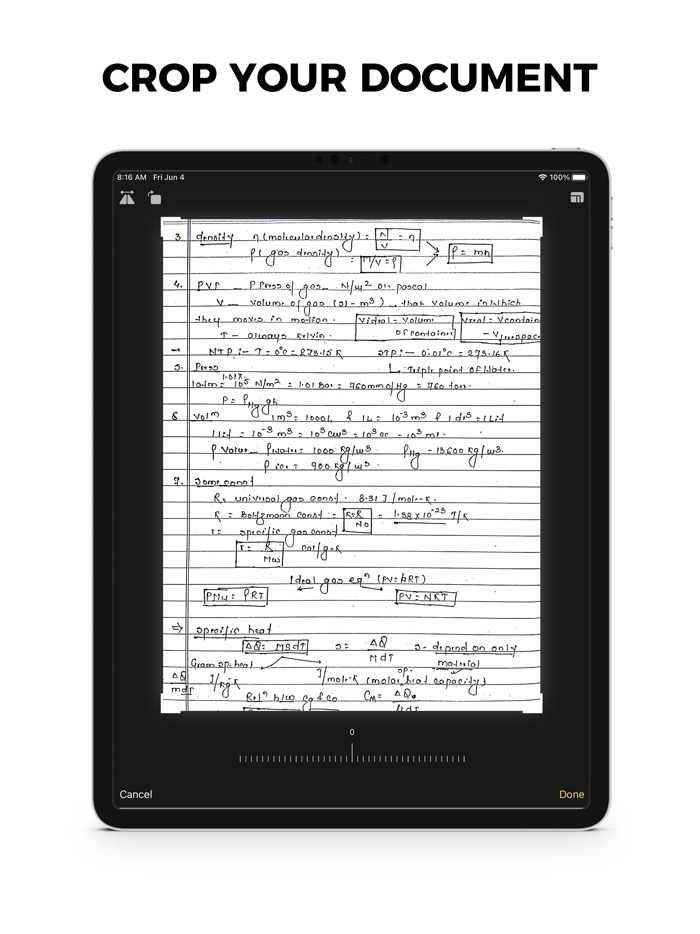 CROP YOUR DOCUMENT
8:16 AM Fri Jun 4
100%
3. density η (molecular density) = N/V = η
ρ (gas density) = M/V = ρ
ρ = mη
4. PVT — P Press of gas — N/m² or pascal
V — volume of gas (SI - m³) — that volume in which
they moves in motion.
Videal = Volume of container
Vreal = Vcontain
T — always kelvin.
NTP :- T = 0°C = 273.15 K
STP :- 0.01°C = 273.16 K
5. Press
Triple point of Water.
1 atm = 1.01 x 10⁵ N/m² = 1.01 Bar = 760 mm/Hg = 760 torr.
P = ρHg gh
6 Volm 1m³ = 1000L & 1L = 10⁻³ m³ & 1 dm³ = 1 Lit
1 Lit = 10⁻³ m³ = 10³ cm³ = 10³ cc
ρ Value — ρwater = 1000 kg/m³ ρHg - 13600 kg/m³.
ρice = 900 kg/m³.
7. Some const
R = universal gas const. 8.31 J/mole-K.
K = Boltzmann const = K=R/N0 = 1.38 x 10⁻²³ J/K
r = specific gas const
r = R/Mw cal/g-K
Ideal gas eqn (PV = nRT)
PMw = ρRT
PV = NKT
⇒ specific heat
ΔQ = MSdT
s = ΔQ/MdT
s - depend on only
material
Gram sp. heat
ΔQ/mdT J/kg K
J/mole-K (molar heat capacity)
Reln b/w
CM = ΔQ
0
Cancel
Done